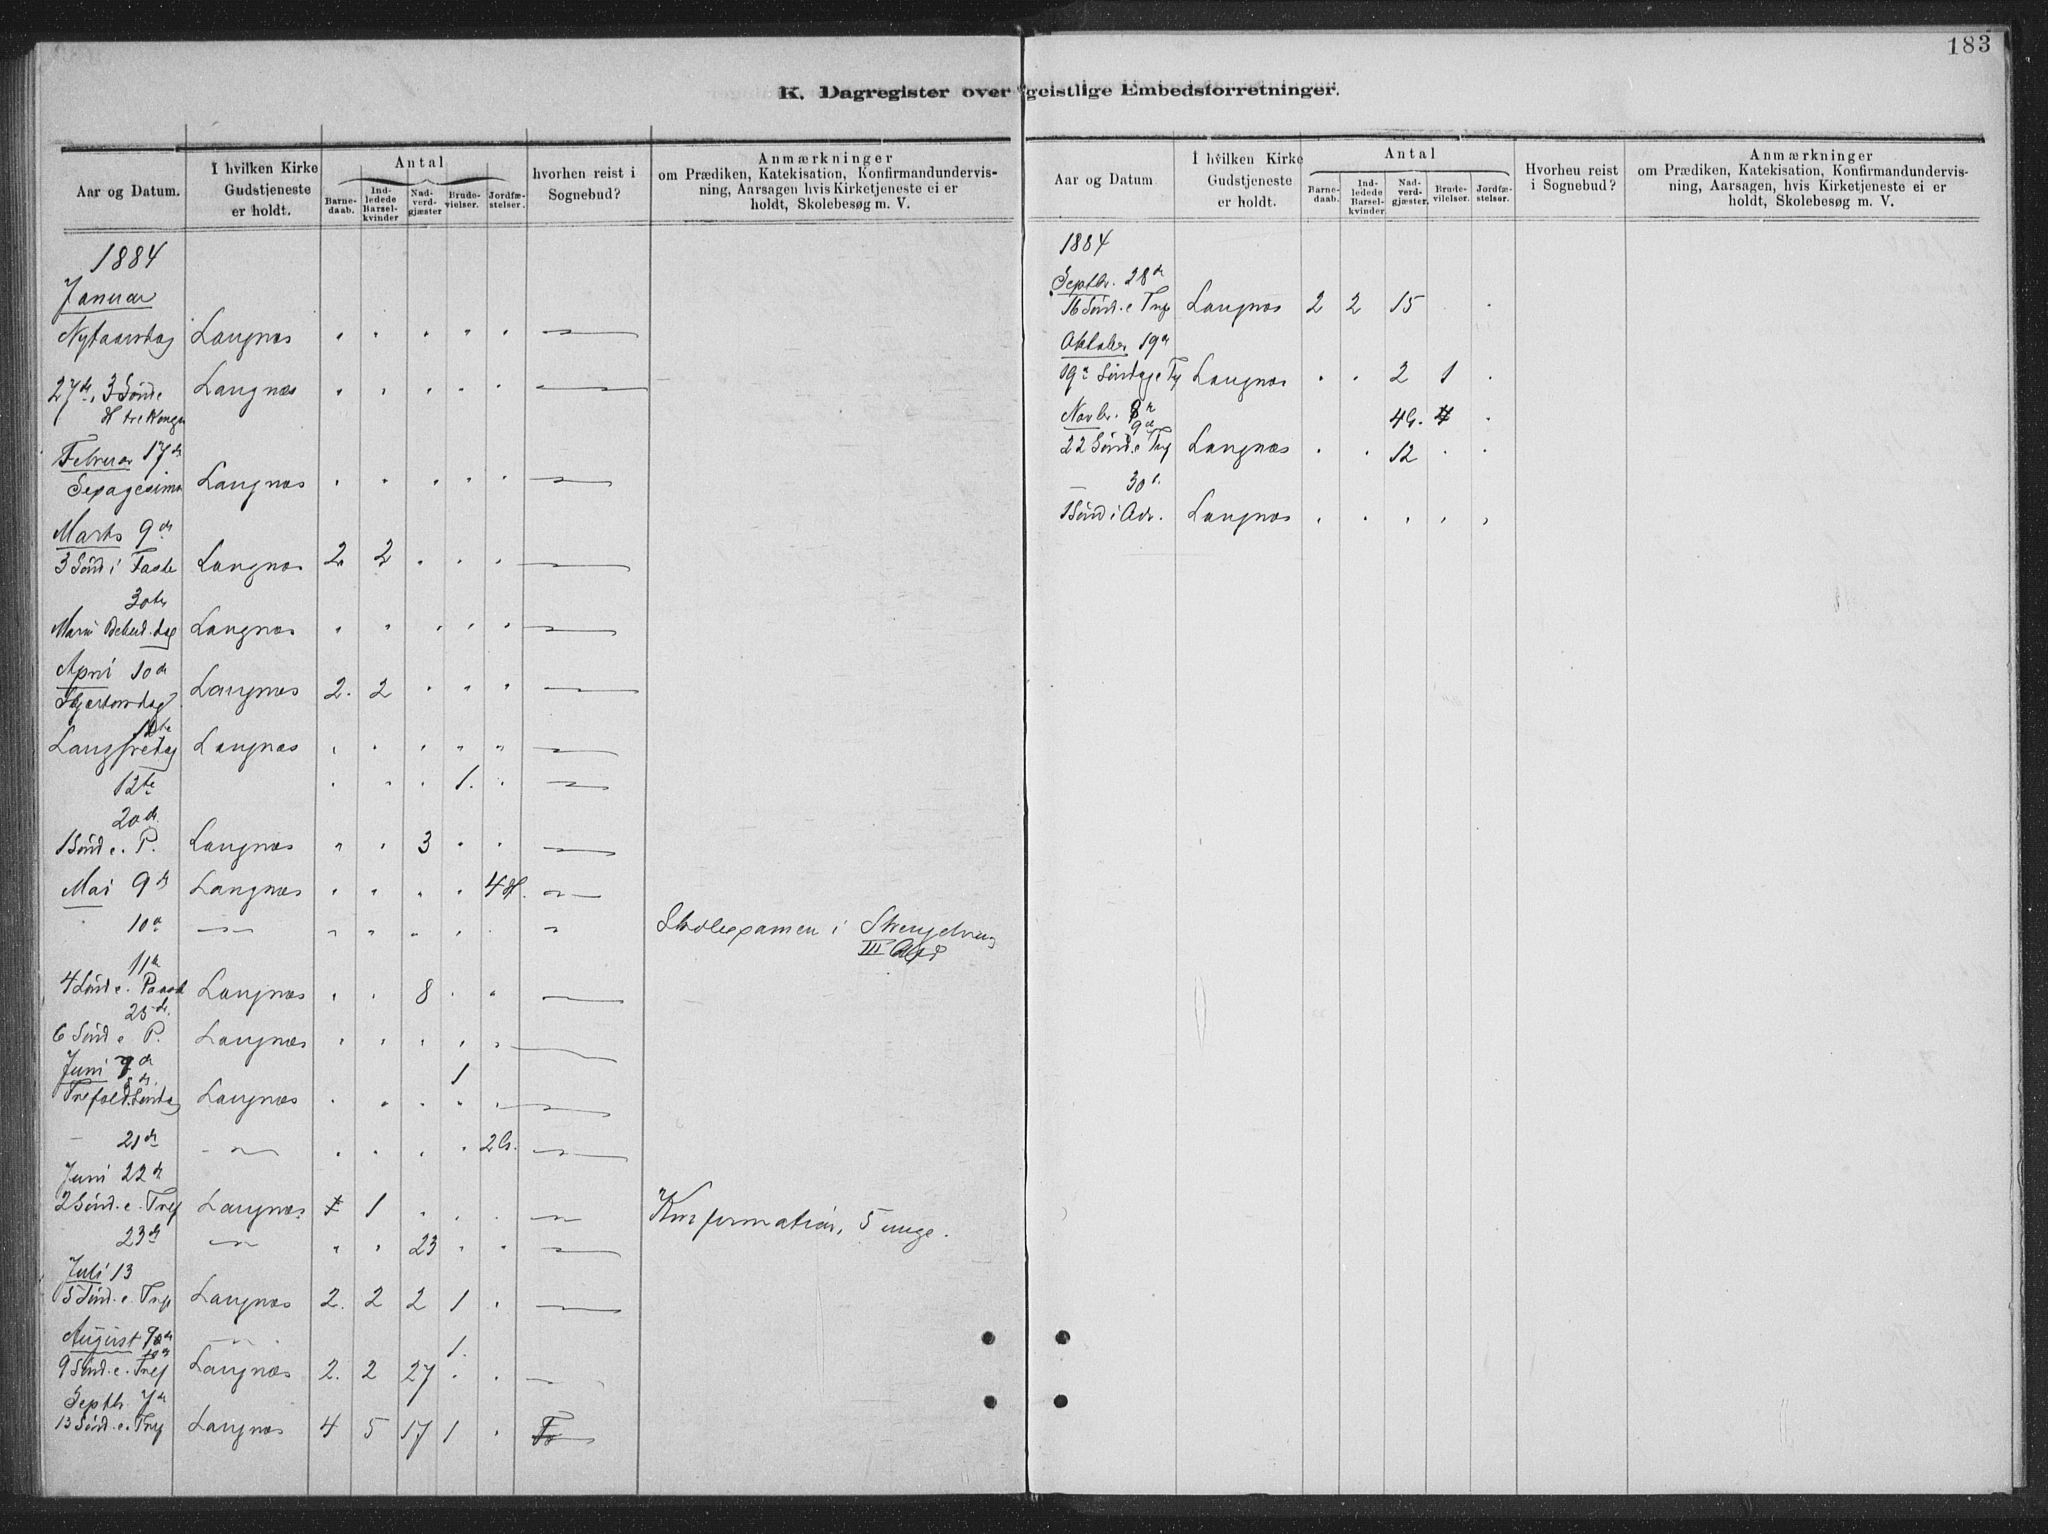 183
K. Dagregister over geistlige Embedsforretninger.
Aar og Datum.
I hvilken Kirke Gudstjeneste er holdt.
Antal
Barnedaab.
Indledede Barselkvinder
Nadverdgjæster
Brudevielser.
Jordfæstelser.
hvorhen reist i Sognebud?
Anmærkninger
om Prædiken, Katekisation, Konfirmandundervisning, Aarsagen hvis Kirketjeneste ei er holdt, Skolebesøg m. V.
1884
Januar
Nytaarsdag Langnæs " " " " "
27de, 3 Sønd e Langnæs " " " " "
H tre Konger
Februar 17de
Sexagesima Langnæs " " " " "
Marts 9de
3 Sønd i Faste Langnæs 2. 2 " " "
30te
Mariæ Bebud. dag Langnæs " " " " "
April 10de
Skjertorsdag Langnæs 2. 2 " " "
11te
Langfredag Langnæs " " " " "
12te " " " 1. "
20de
1 Sønd e. P. Langnæs " " 3 " "
Mai 9de Langnæs " " " " 4 H.
10de " " " " " Skoleexamen i
III
11te
4 Sønd e. Paask Langnæs " " 8 " "
25de
6 Sønd e P. Langnæs " " " " "
Juni 7de 1
8de
Trefold. Søndag Langnæs " " " "
- 21de " " " " 2 G.
Juni 22de
2 Sønd. e. Tref Langnæs 1 1 " " " Konfirmation, 5 unge.
23de " " 23 " "
Juli 13
5 Sønd. e. Tref Langnæs 2. 2 2 1 "
August 9de 1.
10de
9 Sønd. e. Tref Langnæs 2. 2 27 " "
Septbr. 7de
13 Sønd. e. Tref Langnæs 4 5 17 1 "
Aar og Datum
I hvilken Kirke Gudstjeneste er holdt.
Antal
Barnedaab.
Indledede Barselkvinder
Nadverdgjæster.
Brudevilser.
Jordfæstelser.
Hvorheu reist i Sognebud?
Anmærkninger
om Prædiken, Katekisation, Konfirmandundervisning, Aarsagen, hvis Kirketjeneste ei er holdt, Skolebesøg m. V.
1884
Septbr. 28de
16 Sønd. e Tref Langnæs 2 2 15 " "
Oktober 19de
19de Søndag e Tr Langnæs " " 2 1 "
Novbr. 8de 4 G.
9de
22 Sønd. e Tref Langnæs " " 12 " "
- 30te
1 Sønd i Adv. Langnæs " " " " "